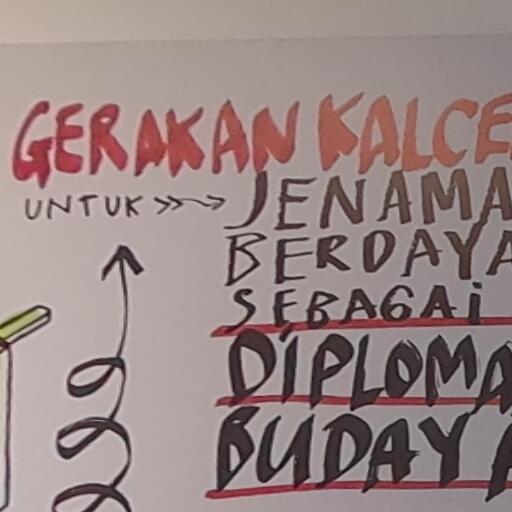 GERAKAN KALCE
UNTUK JENAMA
BERDAYA
SEBAGAI
DIPLOMA
BUDAYA